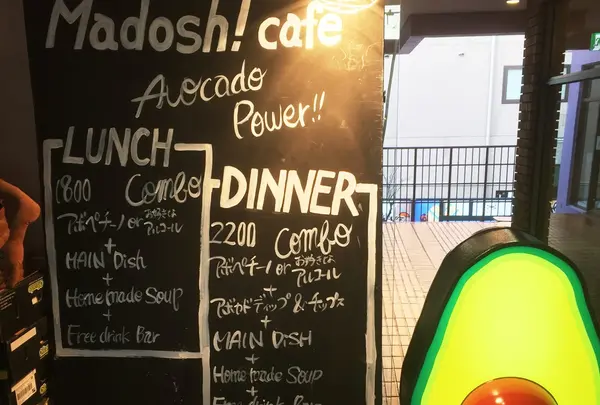 Madosh! cafe
Avocado
Power!!
LUNCH
1800 Combo
アボペチーノ or お好きな
アルコール
+
MAIN Dish
+
Homemade Soup
+
Free drink Bar
DINNER
2200 Combo
アボペチーノ or お好きな
アルコール
+
アボカドディップ&チップス
+
MAIN DISH
+
Homemade Soup
+
Free drink Bar